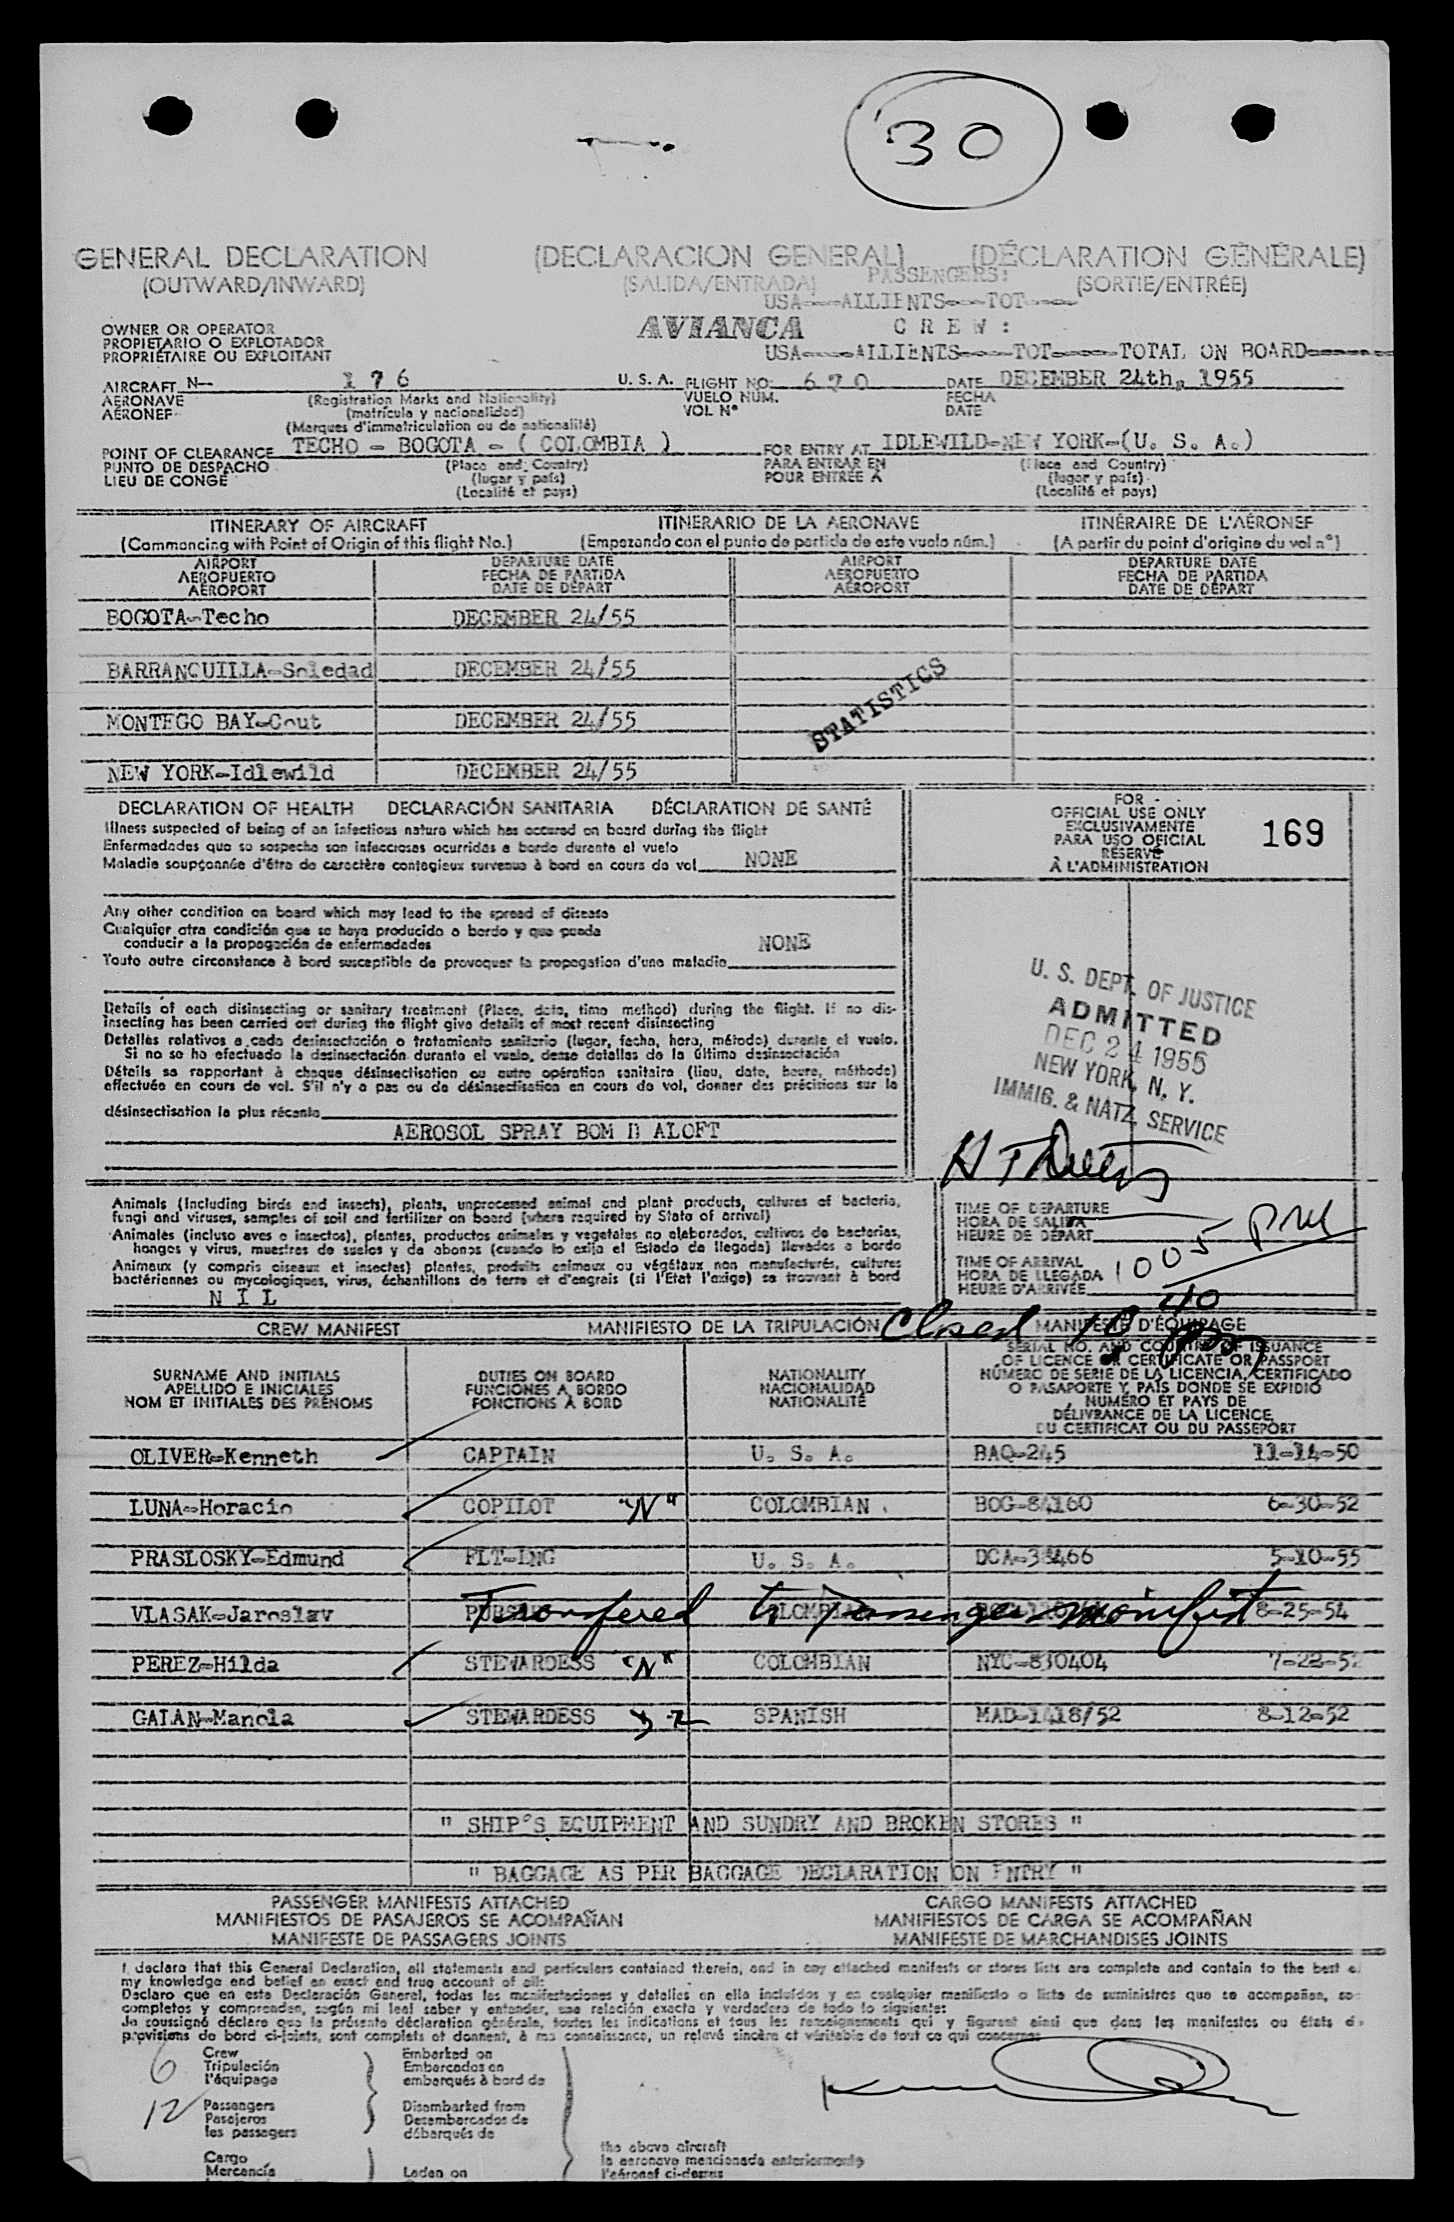 30
GENERAL DECLARATION (DECLARACION GENERAL) (DÉCLARATION GÉNÉRALE)
(OUTWARD/INWARD) (SALIDA/ENTRADA) PASSENGERS: (SORTIE/ENTRÉE)
USA----ALLIENTS----TOT----
OWNER OR OPERATOR AVIANCA CREW:
PROPIETARIO O EXPLOTADOR
PROPRIÉTAIRE OU EXPLOITANT USA----ALLIENTS----TOT----TOTAL ON BOARD----
AIRCRAFT N- 176 U. S. A. FLIGHT NO. 670 DATE DECEMBER 24th, 1955
AERONAVE (Registration Marks and Nationality) VUELO NÚM. FECHA
AÉRONEF (matrícula y nacionalidad) VOL Nº DATE
(Marques d'immatriculation ou de nationalité)
POINT OF CLEARANCE TECHO - BOGOTA - ( COLOMBIA ) FOR ENTRY AT IDLEWILD-NEW YORK-(U. S. A.)
PUNTO DE DESPACHO (Place and Country) PARA ENTRAR EN (Place and Country)
LIEU DE CONGÉ (lugar y país) POUR ENTRÉE A (lugar y país)
(Localité et pays) (Localité et pays)
ITINERARY OF AIRCRAFT ITINERARIO DE LA AERONAVE ITINÉRAIRE DE L'AÉRONEF
(Commencing with Point of Origin of this flight No.) (Empezando con el punto de partida de este vuelo núm.) (A partir du point d'origine du vol nº)
AIRPORT DEPARTURE DATE AIRPORT DEPARTURE DATE
AEROPUERTO FECHA DE PARTIDA AEROPUERTO FECHA DE PARTIDA
AÉROPORT DATE DE DÉPART AÉROPORT DATE DE DÉPART
BOGOTA-Techo DECEMBER 24/55
BARRANQUILLA-Soledad DECEMBER 24/55
MONTEGO BAY-Cout DECEMBER 24/55
STATISTICS
NEW YORK-Idlewild DECEMBER 24/55
DECLARATION OF HEALTH DECLARACIÓN SANITARIA DÉCLARATION DE SANTÉ
Illness suspected of being of an infectious nature which has occured on board during the flight
Enfermedades que se sospecha son infecciosas ocurridas a bordo durante el vuelo
Maladie soupçonnée d'être de caractère contagieux survenue à bord en cours de vol NONE
Any other condition on board which may lead to the spread of disease
Cualquier otra condición que se haya producido a bordo y que pueda
conducir a la propagación de enfermedades NONE
Toute autre circonstance à bord susceptible de provoquer la propagation d'une maladie
Details of each disinsecting or sanitary treatment (Place, date, time method) during the flight. If no dis-
insecting has been carried out during the flight give details of most recent disinsecting
Detalles relativos a cada desinsectación o tratamiento sanitario (lugar, fecha, hora, método) durante el vuelo.
Si no se ha efectuado la desinsectación durante el vuelo, dense detalles de la última desinsectación
Détails se rapportant à chaque désinsectisation ou autre opération sanitaire (lieu, date, heure, méthode)
effectuée en cours de vol. S'il n'y a pas eu de désinsectisation en cours de vol, donner des précisions sur la
désinsectisation la plus récente
AEROSOL SPRAY BOM B ALOFT
FOR
OFFICIAL USE ONLY
EXCLUSIVAMENTE
PARA USO OFICIAL
RÉSERVÉ
À L'ADMINISTRATION
169
U. S. DEPT. OF JUSTICE
ADMITTED
DEC 24 1955
NEW YORK, N. Y.
IMMIG. & NATZ. SERVICE
Animals (Including birds and insects), plants, unprocessed animal and plant products, cultures of bacteria,
fungi and viruses, samples of soil and fertilizer on board (where required by State of arrival)
Animales (incluso aves e insectos), plantes, productos animales y vegetales no elaborados, cultivos de bacterias,
hongos y virus, muestras de suelos y de abonos (cuando lo exija el Estado de llegada) llevados a bordo
Animaux (y compris oiseaux et insectes) plantes, produits animaux ou végétaux non manufacturés, cultures
bactériennes ou mycologiques, virus, échantillons de terre et d'engrais (si l'Etat l'exige) se trouvant à bord
N I L
TIME OF DEPARTURE
HORA DE SALIDA
HEURE DE DÉPART
TIME OF ARRIVAL
HORA DE LLEGADA 1005 PM
HEURE D'ARRIVÉE
Closed 10 40 pm
CREW MANIFEST MANIFIESTO DE LA TRIPULACIÓN MANIFESTE D'ÉQUIPAGE
SURNAME AND INITIALS DUTIES ON BOARD NATIONALITY SERIAL NO. AND COUNTRY OF ISSUANCE
APELLIDO E INICIALES FUNCIONES A BORDO NACIONALIDAD OF LICENCE OR CERTIFICATE OR PASSPORT
NOM ET INITIALES DES PRÉNOMS FONCTIONS À BORD NATIONALITÉ NÚMERO DE SERIE DE LA LICENCIA, CERTIFICADO
O PASAPORTE Y PAÍS DONDE SE EXPIDIÓ
NUMÉRO ET PAYS DE
DÉLIVRANCE DE LA LICENCE,
DU CERTIFICAT OU DU PASSEPORT
OLIVER-Kenneth CAPTAIN U. S. A. BAQ-245 11-14-50
LUNA-Horacio COPILOT "N" COLOMBIAN BOG-84160 6-30-52
PRASLOSKY-Edmund FLT-ENG U. S. A. DCA-38466 5-10-55
VLASAK-Jaroslav Transfered to Passenger manifest 8-25-54
PEREZ-Hilda STEWARDESS "N" COLOMBIAN NYC-830404 7-22-52
GALAN-Manola STEWARDESS SPANISH MAD-1418/52 8-12-52
" SHIP'S EQUIPMENT AND SUNDRY AND BROKEN STORES "
" BAGGAGE AS PER BAGGAGE DECLARATION ON ENTRY "
PASSENGER MANIFESTS ATTACHED CARGO MANIFESTS ATTACHED
MANIFIESTOS DE PASAJEROS SE ACOMPAÑAN MANIFIESTOS DE CARGA SE ACOMPAÑAN
MANIFESTE DE PASSAGERS JOINTS MANIFESTE DE MARCHANDISES JOINTS
I declare that this General Declaration, all statements and particulars contained therein, and in any attached manifests or stores lists are complete and contain to the best
my knowledge and belief an exact and true account of all:
Declaro que en esta Declaración General, todas las manifestaciones y detalles en ella incluidos y en cualquier manifiesto o lista de suministros que se acompañan, so
completos y comprenden, según mi leal saber y entender, una relación exacta y verdadera de todo lo siguiente:
Je soussigné déclare que la présente déclaration générale, toutes les indications et tous les renseignements qui y figurent ainsi que dans les manifestes ou états d
provisions de bord ci-joints, sont complets et donnent, à ma connaissance, un relevé sincère et véritable de tout ce qui concerne:
6 Crew Embarked on
Tripulación Embarcados en
l'équipage embarqués à bord de
12 Passengers Disembarked from
Pasajeros Desembarcados de
les passagers débarqués de
the above aircraft
Cargo la aeronave mencionada anteriormente
Mercancía Laden on l'aéronef ci-dessus